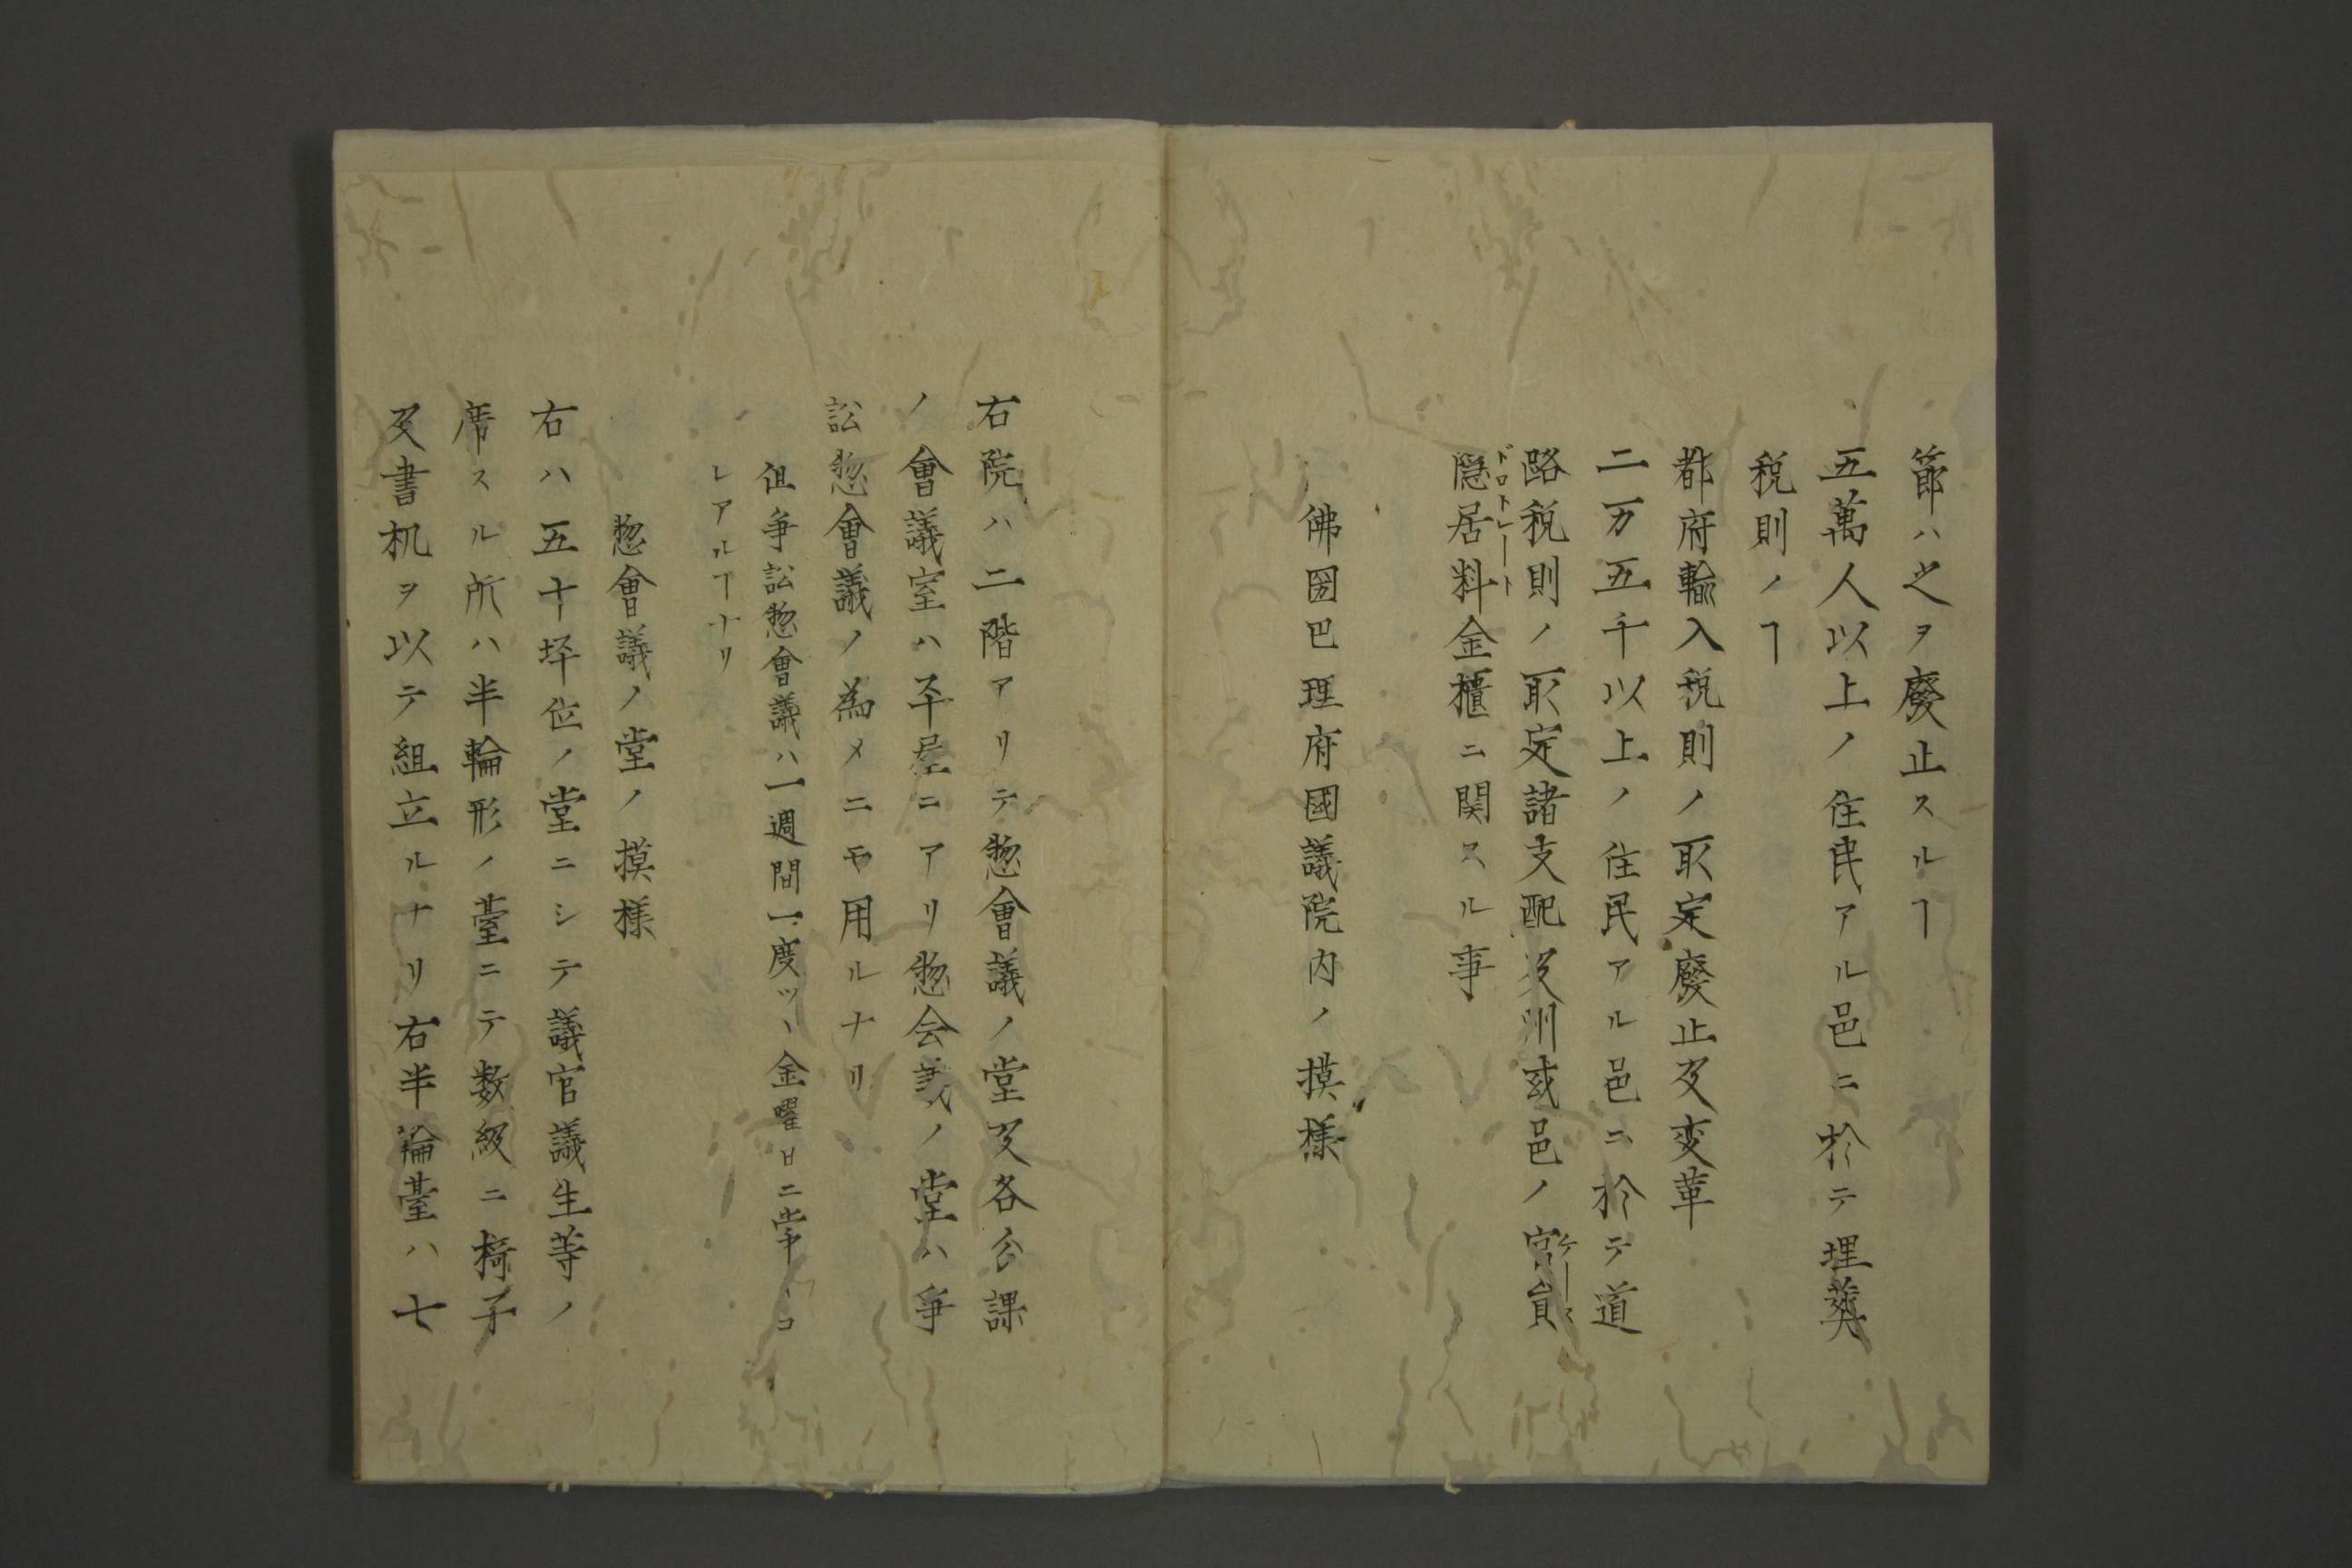 節ハ之ヲ廢止スルヿ
五萬人以上ノ住民アル邑ニ於テ埋葬
税則ノヿ
都府輸入税則ノ取定廢止及変革
二万五千以上ノ住民アル邑ニ於テ道
路税則ノ取定諸支配及州或邑ノ官員
ケース
ドロトレート
隠居料金櫃ニ関スル事
佛国巴理府國議院内ノ摸様
右院ハ二階アリテ惣會議ノ堂及各分課
ノ會議室ハ平屋ニアリ惣会議ノ堂ハ爭
訟惣會議ノ為メニモ用ルナリ
但爭訟惣會議ハ一週間一度ツヽ金曜日ニ常ヽコ
レアルヿナリ
惣會議ノ堂ノ摸様
右ハ五十坪位ノ堂ニシテ議官議生等ノ
席スル所ハ半輪形ノ臺ニテ数級ニ椅子
及書机ヲ以テ組立ルナリ右半輪臺ハ七